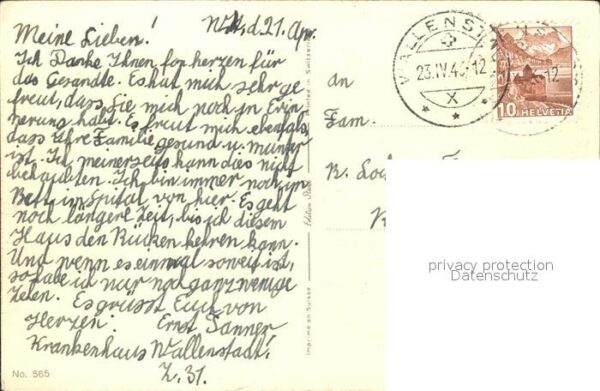 Meine Lieben! W'stdt, d. 21. Apr.
Ich Danke Ihnen for herzen für
das Gesandte. Es hat mich sehr ge
freut, dass Sie mich noch in Erin
nerung habt. Es freut mich ebenfals,
dass Ihre Familie gesund u. munter
ist. Ich meinerseits kann dies nicht
behaubten. Ich bin immer noch im
Bett im Spital von hier. Es geht
noch längere Zeit, bis ich diesem
Haus den Rücken kehren kann.
Und wenn es einmal soweit ist,
so habe ich nur noch ganz wenige
Zeien. Es grüsst Euch von
Herzen: Ernst Sanner
Krankenhaus Wallenstadt!
Z. 31.
No. 565
Imprimé en Suisse
Printed in Switzerland
WALLENST
23.IV.4 12
X
12
10 HELVETIA
an
Fam.
R.
privacy protection
Datenschutz